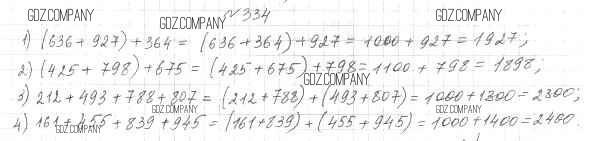 № 334
GDZ.COMPANY GDZ.COMPANY GDZ.COMPANY
1) (636 + 927) + 364 = (636 + 364) + 927 = 1000 + 927 = 1927;
2) (425 + 798) + 675 = (425 + 675) + 798 = 1100 + 798 = 1898;
GDZ.COMPANY
3) 212 + 493 + 788 + 807 = (212 + 788) + (493 + 807) = 1000 + 1300 = 2300;
GDZ.COMPANY GDZ.COMPANY
4) 161 + 455 + 839 + 945 = (161 + 839) + (455 + 945) = 1000 + 1400 = 2400.
GDZ.COMPANY